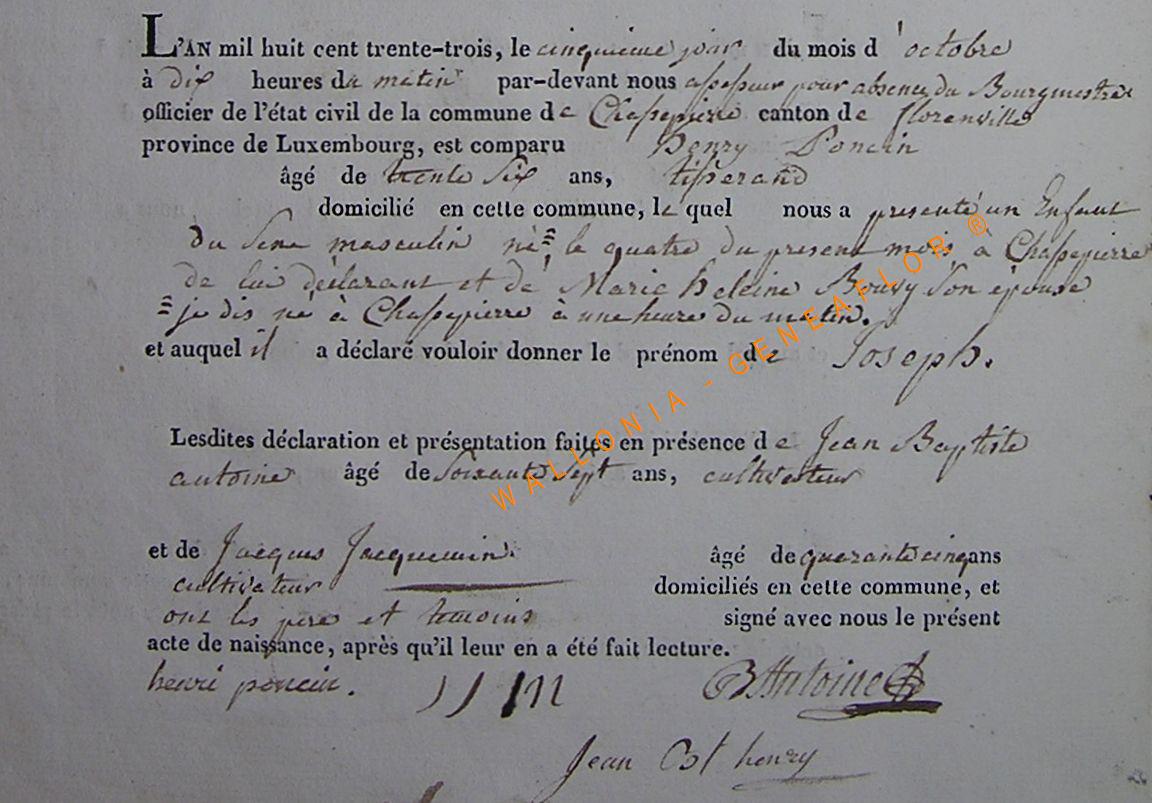 L'AN mil huit cent trente-trois, le cinquieme jour du mois d'octobre
à dix heures du matin par-devant nous assesseur pour absence du Bourgmestre
officier de l'état civil de la commune de Chassepierre canton de florenville
province de Luxembourg, est comparu henry Poncin
âgé de trente Six ans, tisserand
domicilié en cette commune, le quel nous a presenté un Enfant
du Sexe masculin né le quatre du present mois à Chassepierre
de lui déclarant et de Marie heleine Bouvy Son épouse
= je dis né à Chassepierre à une heure du matin.
et auquel il a déclaré vouloir donner le prénom de Joseph.
Lesdites déclaration et présentation faites en présence de Jean Baptiste
antoine âgé de Soixante Sept ans, cultivateur
et de Jacques Jacquemin âgé de quarante cinq ans
cultivateur domiciliés en cette commune, et
ont les père et temoins signé avec nous le présent
acte de naissance, après qu'il leur en a été fait lecture.
henri poncin. JJ B Antoine
Jean Bt henry
WALLONIA - GENEAFLOR ®